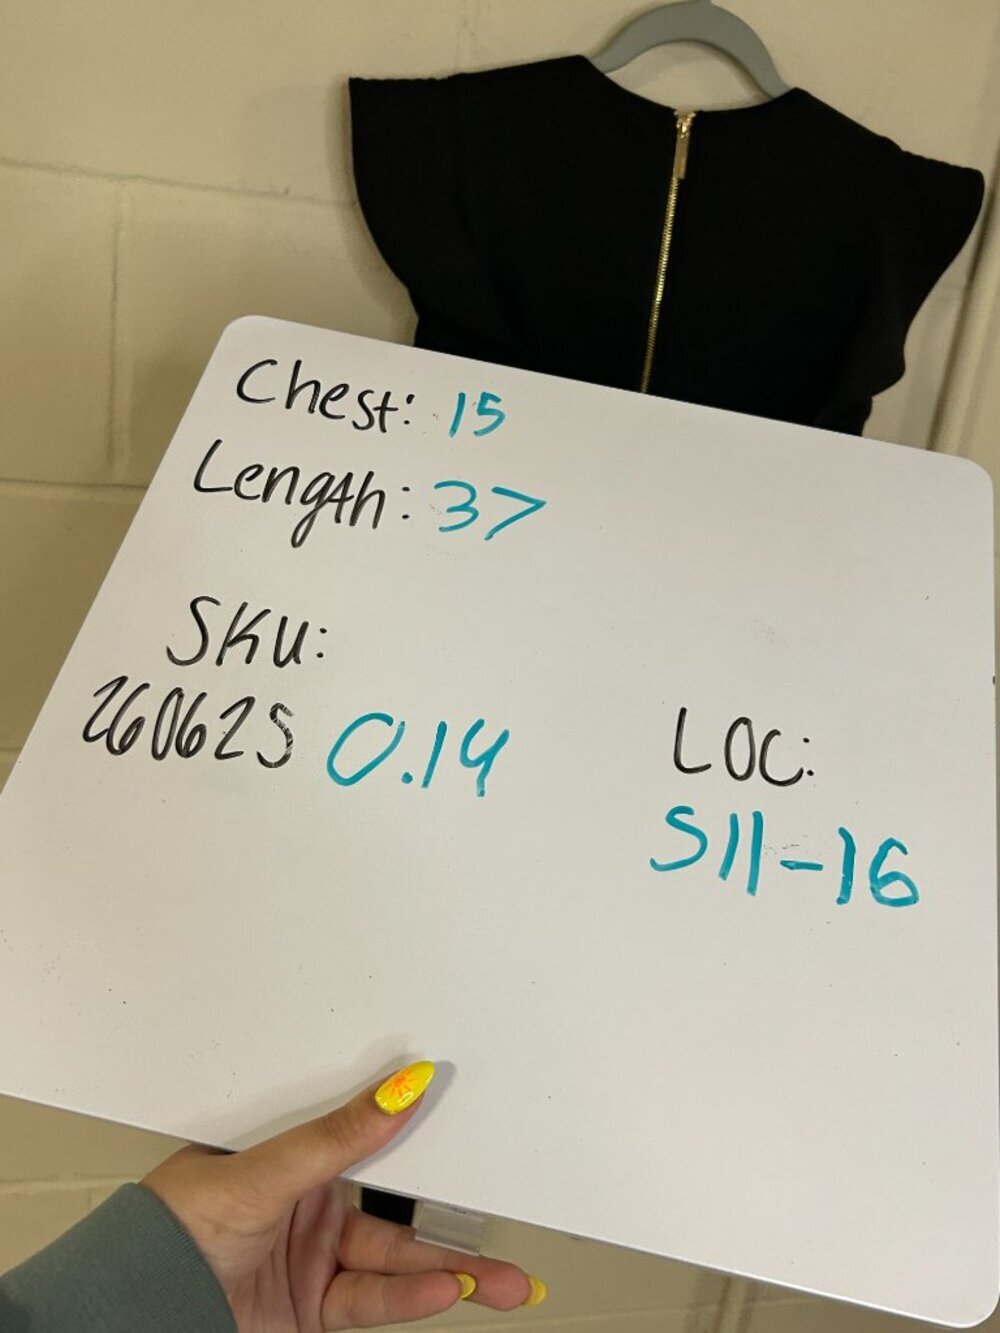 Chest: 15
Length: 37
SKU:
260625 0.14
LOC:
S11-16